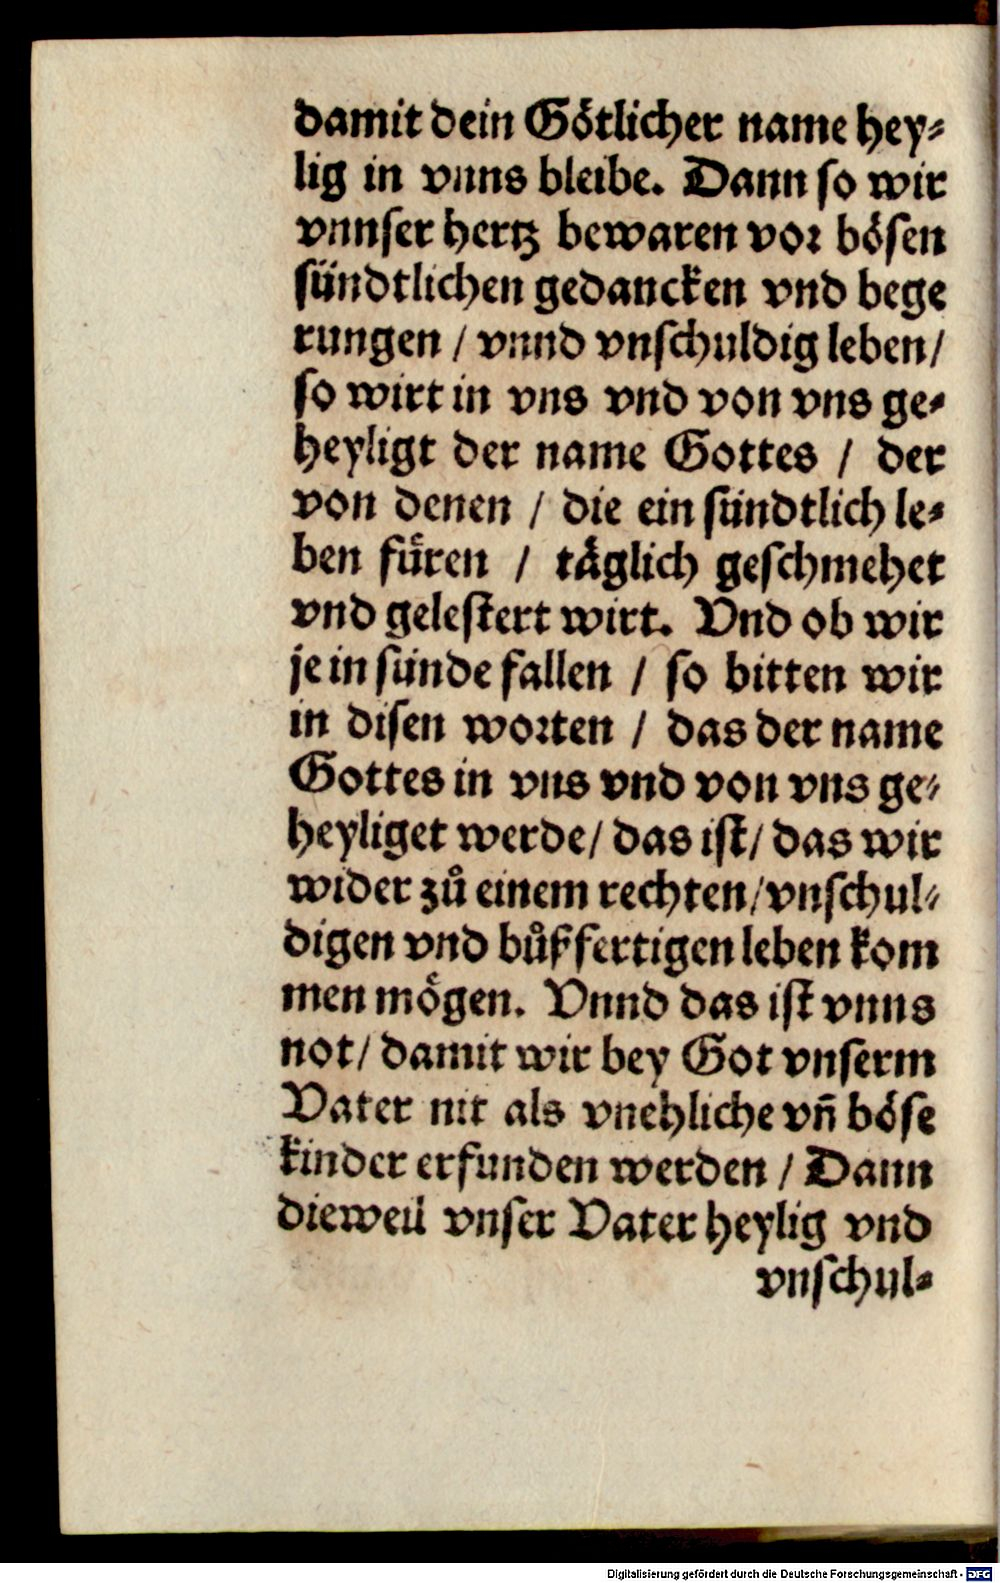 damit dein Götlicher name hey-
lig in vnns bleibe. Dann so wir
vnnser hertz bewaren vor bösen
sündtlichen gedancken vnd bege
rungen / vnnd vnschuldig leben /
so wirt in vns vnd von vns ge-
heyligt der name Gottes / der
von denen / die ein sündtlich le-
ben füren / täglich geschmehet
vnd gelestert wirt. Vnd ob wir
je in sünde fallen / so bitten wir
in disen worten / das der name
Gottes in vns vnd von vns ge-
heyliget werde / das ist / das wir
wider zů einem rechten / vnschul-
digen vnd bůßfertigen leben kom
men mögen. Vnnd das ist vnns
not / damit wir bey Got vnserm
Vater nit als vnehliche vñ böse
kinder erfunden werden / Dann
dieweil vnser Vater heylig vnd
vnschul-
Digitalisierung gefördert durch die Deutsche Forschungsgemeinschaft - DFG